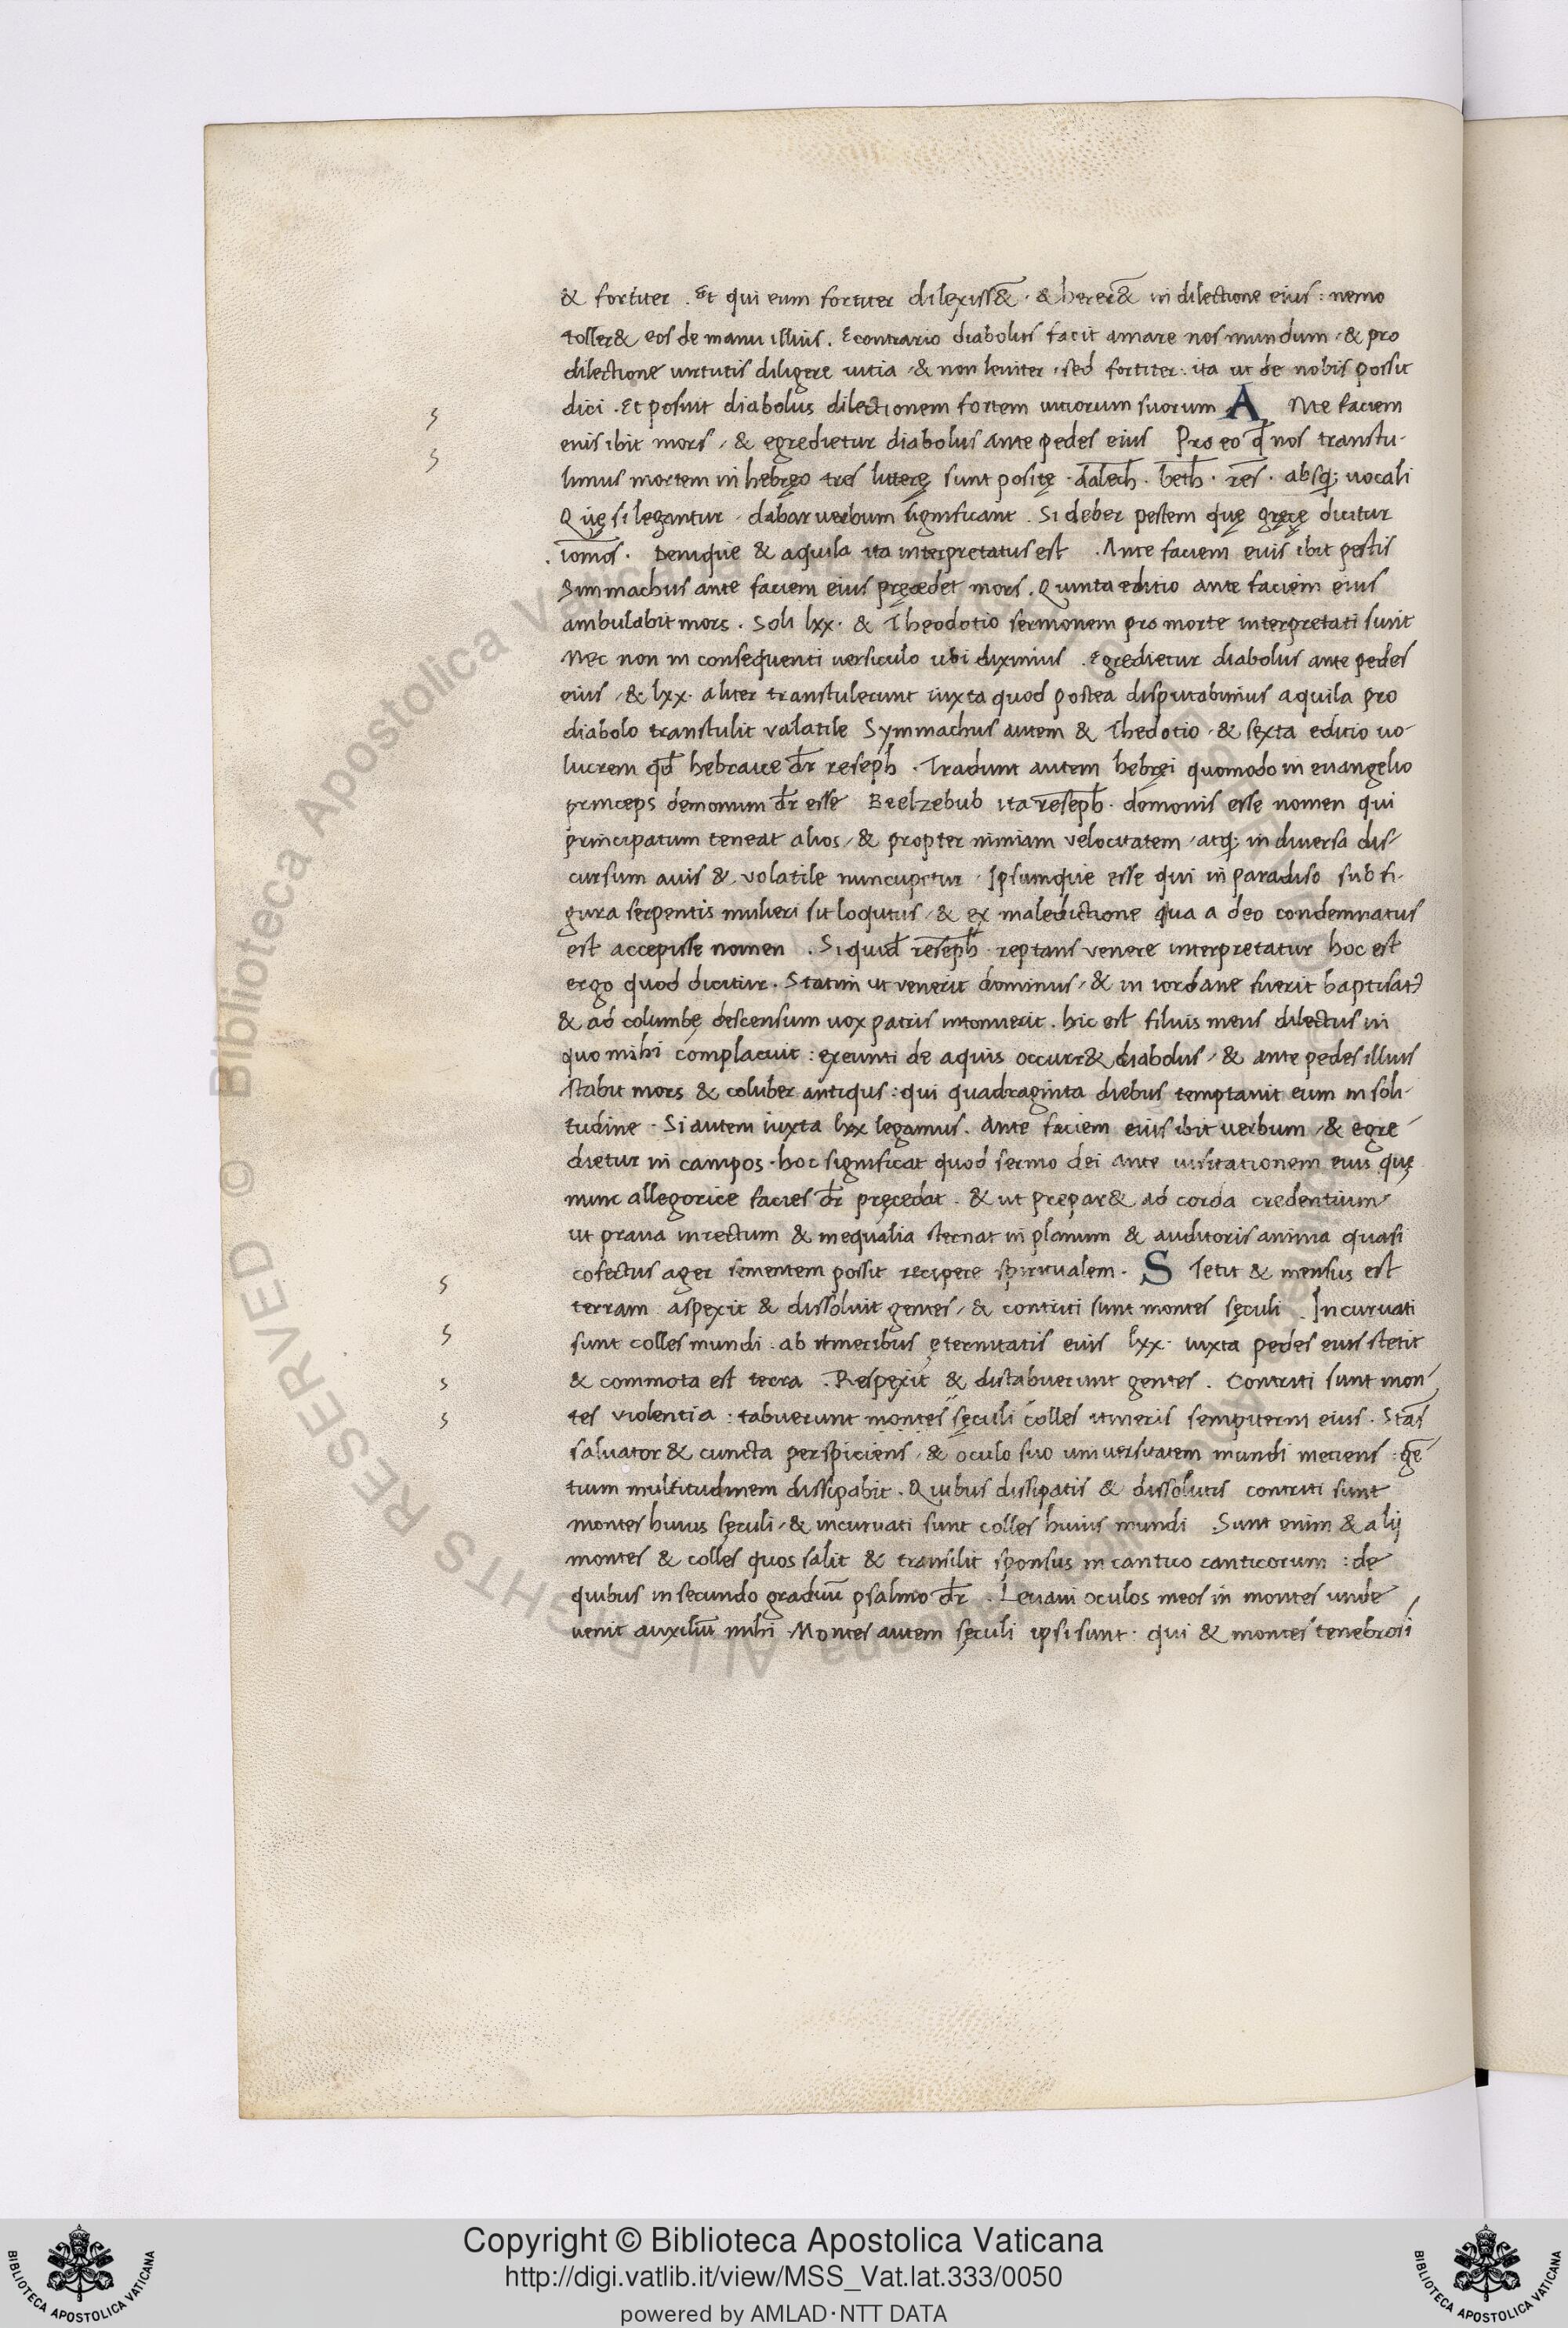 & fortiter . Et qui eum fortiter dilexiss& · & herer& in dilectione eius : nemo
toller& eos de manu illius . Econtrario diabolus facit amare nos mundum · & pro
dilectione uirtutis diligere uitia · & non leniter · sed fortiter · ita ut de nobis possit
dici . Et posuit diabolus dilectionem fortem uitiorum suorum A Nte faciem
eius ibit mors · & egredietur diabolus ante pedes eius Pro eo q̄ nos transtu-
limus mortem in hebręo tres litterę sunt positę · daleth · beth · res · absq; uocali
Quę si legantur · dabar uerbum significant . Si deber pestem quę gręcę dicitur
. iomos . Denique & aquila ita interpretatus est . Ante faciem euis ibit pestis
Simmachus ante faciem eius pręcedet mors . Quinta editio ante faciem eius
ambulabit mors . Soli lxx · & Theodotio sermonem pro morte interpretati sunt
Nec non in consequenti uersiculo ubi diximus . Egredietur diabolus ante pedes
eius · & lxx · aliter transtulerunt iuxta quod postea disputabimus aquila pro
diabolo transtulit valatile Symmachus autem & Thedotio · & sexta editio uo-
lucrem qd̄ hebraice dr̄ reseph . Tradunt autem hebręi quomodo in euangelio
princeps demonum dr̄ esse Beelzebub ita reseph · demonis esse nomen qui
principatum teneat alios · & propter nimiam velocitatem · atq; in diuersa dis-
cursum auis & volatile nuncupetur · Ipsumque esse qui in paradiso sub fi-
gura serpentis mulieri sit loqutus · & ex maledictione qua a deo condemnatus
est accepisse nomen . Si quid reseph · reptans venere interpretatur hoc est
ergo quod dicitur . Statim ut venerit dominus · & in iordane fuerit baptisat9
& ad columbę descensum uox patris intonuerit . hic est filius meus dilectus in
quo mihi complacuit : exeunti de aquis occurr& diabolus · & ante pedes illius
stabit mors & coluber antiqus : qui quadraginta diebus temptauit eum in soli-
tudine · Si autem iuxta lxx legamus . Ante faciem eius ibit uerbum · & egre
dietur in campos · hoc significat quod sermo dei ante uisitationem eius quę
nunc allegorice facies dr̄ pręcedat . & ut prepar& ad corda credentium
ut praua in rectum & inequalia sternat in planum & auditoris anima quasi
cofectus ager sementem possit recipere spiritualem . S Tetit & mensus est
terram aspexit & dissoluit gentes · & contriti sunt montes sęculi . Incuruati
sunt colles mundi · ab itineribus ęternitatis eius lxx · iuxta pedes eius stetit
& commota est terra . Respexit & distabuerunt gentes . Contriti sunt mon
tes violentia : tabuerunt montes sęculi colles itineris sempiterni eius . Stās
saluator & cuncta perspiciens · & oculo suo uniuersitatem mundi metiens · gē
tium multitudinem dissipabit . Quibus dissipatis & dissolutis contriti sunt
montes huius sęculi · & incuruati sunt colles huius mundi . Sunt enim & alij
montes & colles quos salit & transilit sponsus in cantico canticorum : de
quibus in secundo graduū psalmo dr̄ . Leuaui oculos meos in montes unde
uenit auxiliū mihi . Montes autem sęculi ipsi sunt · qui & montes tenebrosi
Copyright © Biblioteca Apostolica Vaticana
http://digi.vatlib.it/view/MSS_Vat.lat.333/0050
powered by AMLAD·NTT DATA